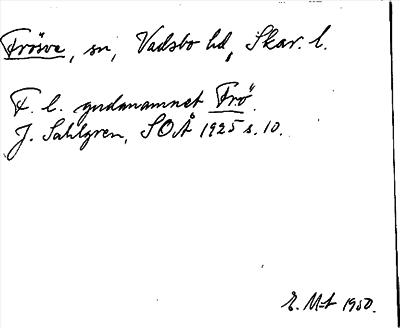 Frösve, sn, Vadsbo hd, Skar. l.
F. l. gudanamnet Frö.
J. Sahlgren, SOÅ 1925 s. 10.
E. M-t 1950.